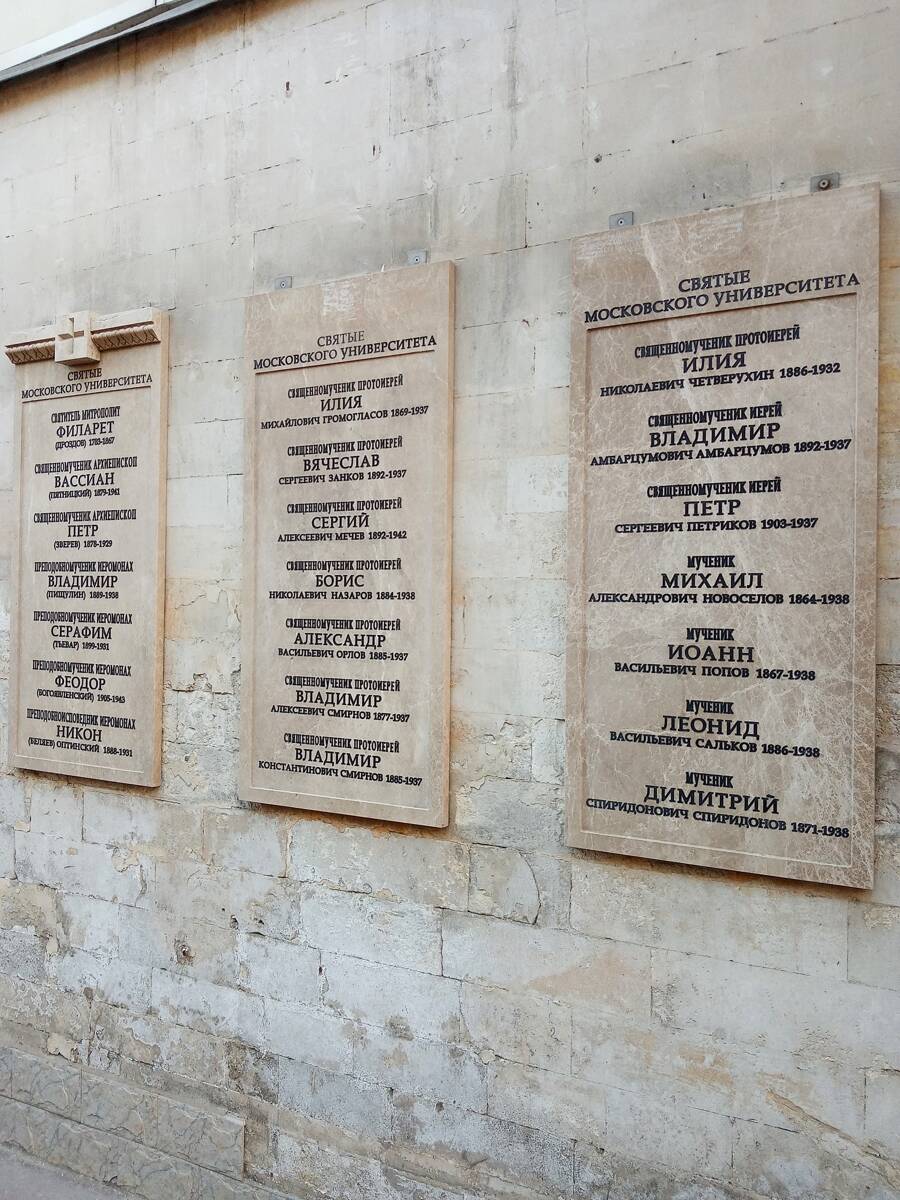 СВЯТЫЕ
МОСКОВСКОГО УНИВЕРСИТЕТА
СВЯТИТЕЛЬ МИТРОПОЛИТ
ФИЛАРЕТ
(ДРОЗДОВ) 1783-1867
СВЯЩЕННОМУЧЕНИК АРХИЕПИСКОП
ВАССИАН
(ПЯТНИЦКИЙ) 1879-1941
СВЯЩЕННОМУЧЕНИК АРХИЕПИСКОП
ПЕТР
(ЗВЕРЕВ) 1878-1929
ПРЕПОДОБНОМУЧЕНИК ИЕРОМОНАХ
ВЛАДИМИР
(ПИЩУЛИН) 1889-1938
ПРЕПОДОБНОМУЧЕНИК ИЕРОМОНАХ
СЕРАФИМ
(ТЬЕВАР) 1899-1931
ПРЕПОДОБНОМУЧЕНИК ИЕРОМОНАХ
ФЕОДОР
(БОГОЯВЛЕНСКИЙ) 1905-1943
ПРЕПОДОБНОИСПОВЕДНИК ИЕРОМОНАХ
НИКОН
(БЕЛЯЕВ) ОПТИНСКИЙ 1888-1931
СВЯТЫЕ
МОСКОВСКОГО УНИВЕРСИТЕТА
СВЯЩЕННОМУЧЕНИК ПРОТОИЕРЕЙ
ИЛИЯ
МИХАЙЛОВИЧ ГРОМОГЛАСОВ 1869-1937
СВЯЩЕННОМУЧЕНИК ПРОТОИЕРЕЙ
ВЯЧЕСЛАВ
СЕРГЕЕВИЧ ЗАНКОВ 1892-1937
СВЯЩЕННОМУЧЕНИК ПРОТОИЕРЕЙ
СЕРГИЙ
АЛЕКСЕЕВИЧ МЕЧЕВ 1892-1942
СВЯЩЕННОМУЧЕНИК ПРОТОИЕРЕЙ
БОРИС
НИКОЛАЕВИЧ НАЗАРОВ 1884-1938
СВЯЩЕННОМУЧЕНИК ПРОТОИЕРЕЙ
АЛЕКСАНДР
ВАСИЛЬЕВИЧ ОРЛОВ 1885-1937
СВЯЩЕННОМУЧЕНИК ПРОТОИЕРЕЙ
ВЛАДИМИР
АЛЕКСЕЕВИЧ СМИРНОВ 1877-1937
СВЯЩЕННОМУЧЕНИК ПРОТОИЕРЕЙ
ВЛАДИМИР
КОНСТАНТИНОВИЧ СМИРНОВ 1885-1937
СВЯТЫЕ
МОСКОВСКОГО УНИВЕРСИТЕТА
СВЯЩЕННОМУЧЕНИК ПРОТОИЕРЕЙ
ИЛИЯ
НИКОЛАЕВИЧ ЧЕТВЕРУХИН 1886-1932
СВЯЩЕННОМУЧЕНИК ИЕРЕЙ
ВЛАДИМИР
АМБАРЦУМОВИЧ АМБАРЦУМОВ 1892-1937
СВЯЩЕННОМУЧЕНИК ИЕРЕЙ
ПЕТР
СЕРГЕЕВИЧ ПЕТРИКОВ 1903-1937
МУЧЕНИК
МИХАИЛ
АЛЕКСАНДРОВИЧ НОВОСЕЛОВ 1864-1938
МУЧЕНИК
ИОАНН
ВАСИЛЬЕВИЧ ПОПОВ 1867-1938
МУЧЕНИК
ЛЕОНИД
ВАСИЛЬЕВИЧ САЛЬКОВ 1886-1938
МУЧЕНИК
ДИМИТРИЙ
СПИРИДОНОВИЧ СПИРИДОНОВ 1871-1938